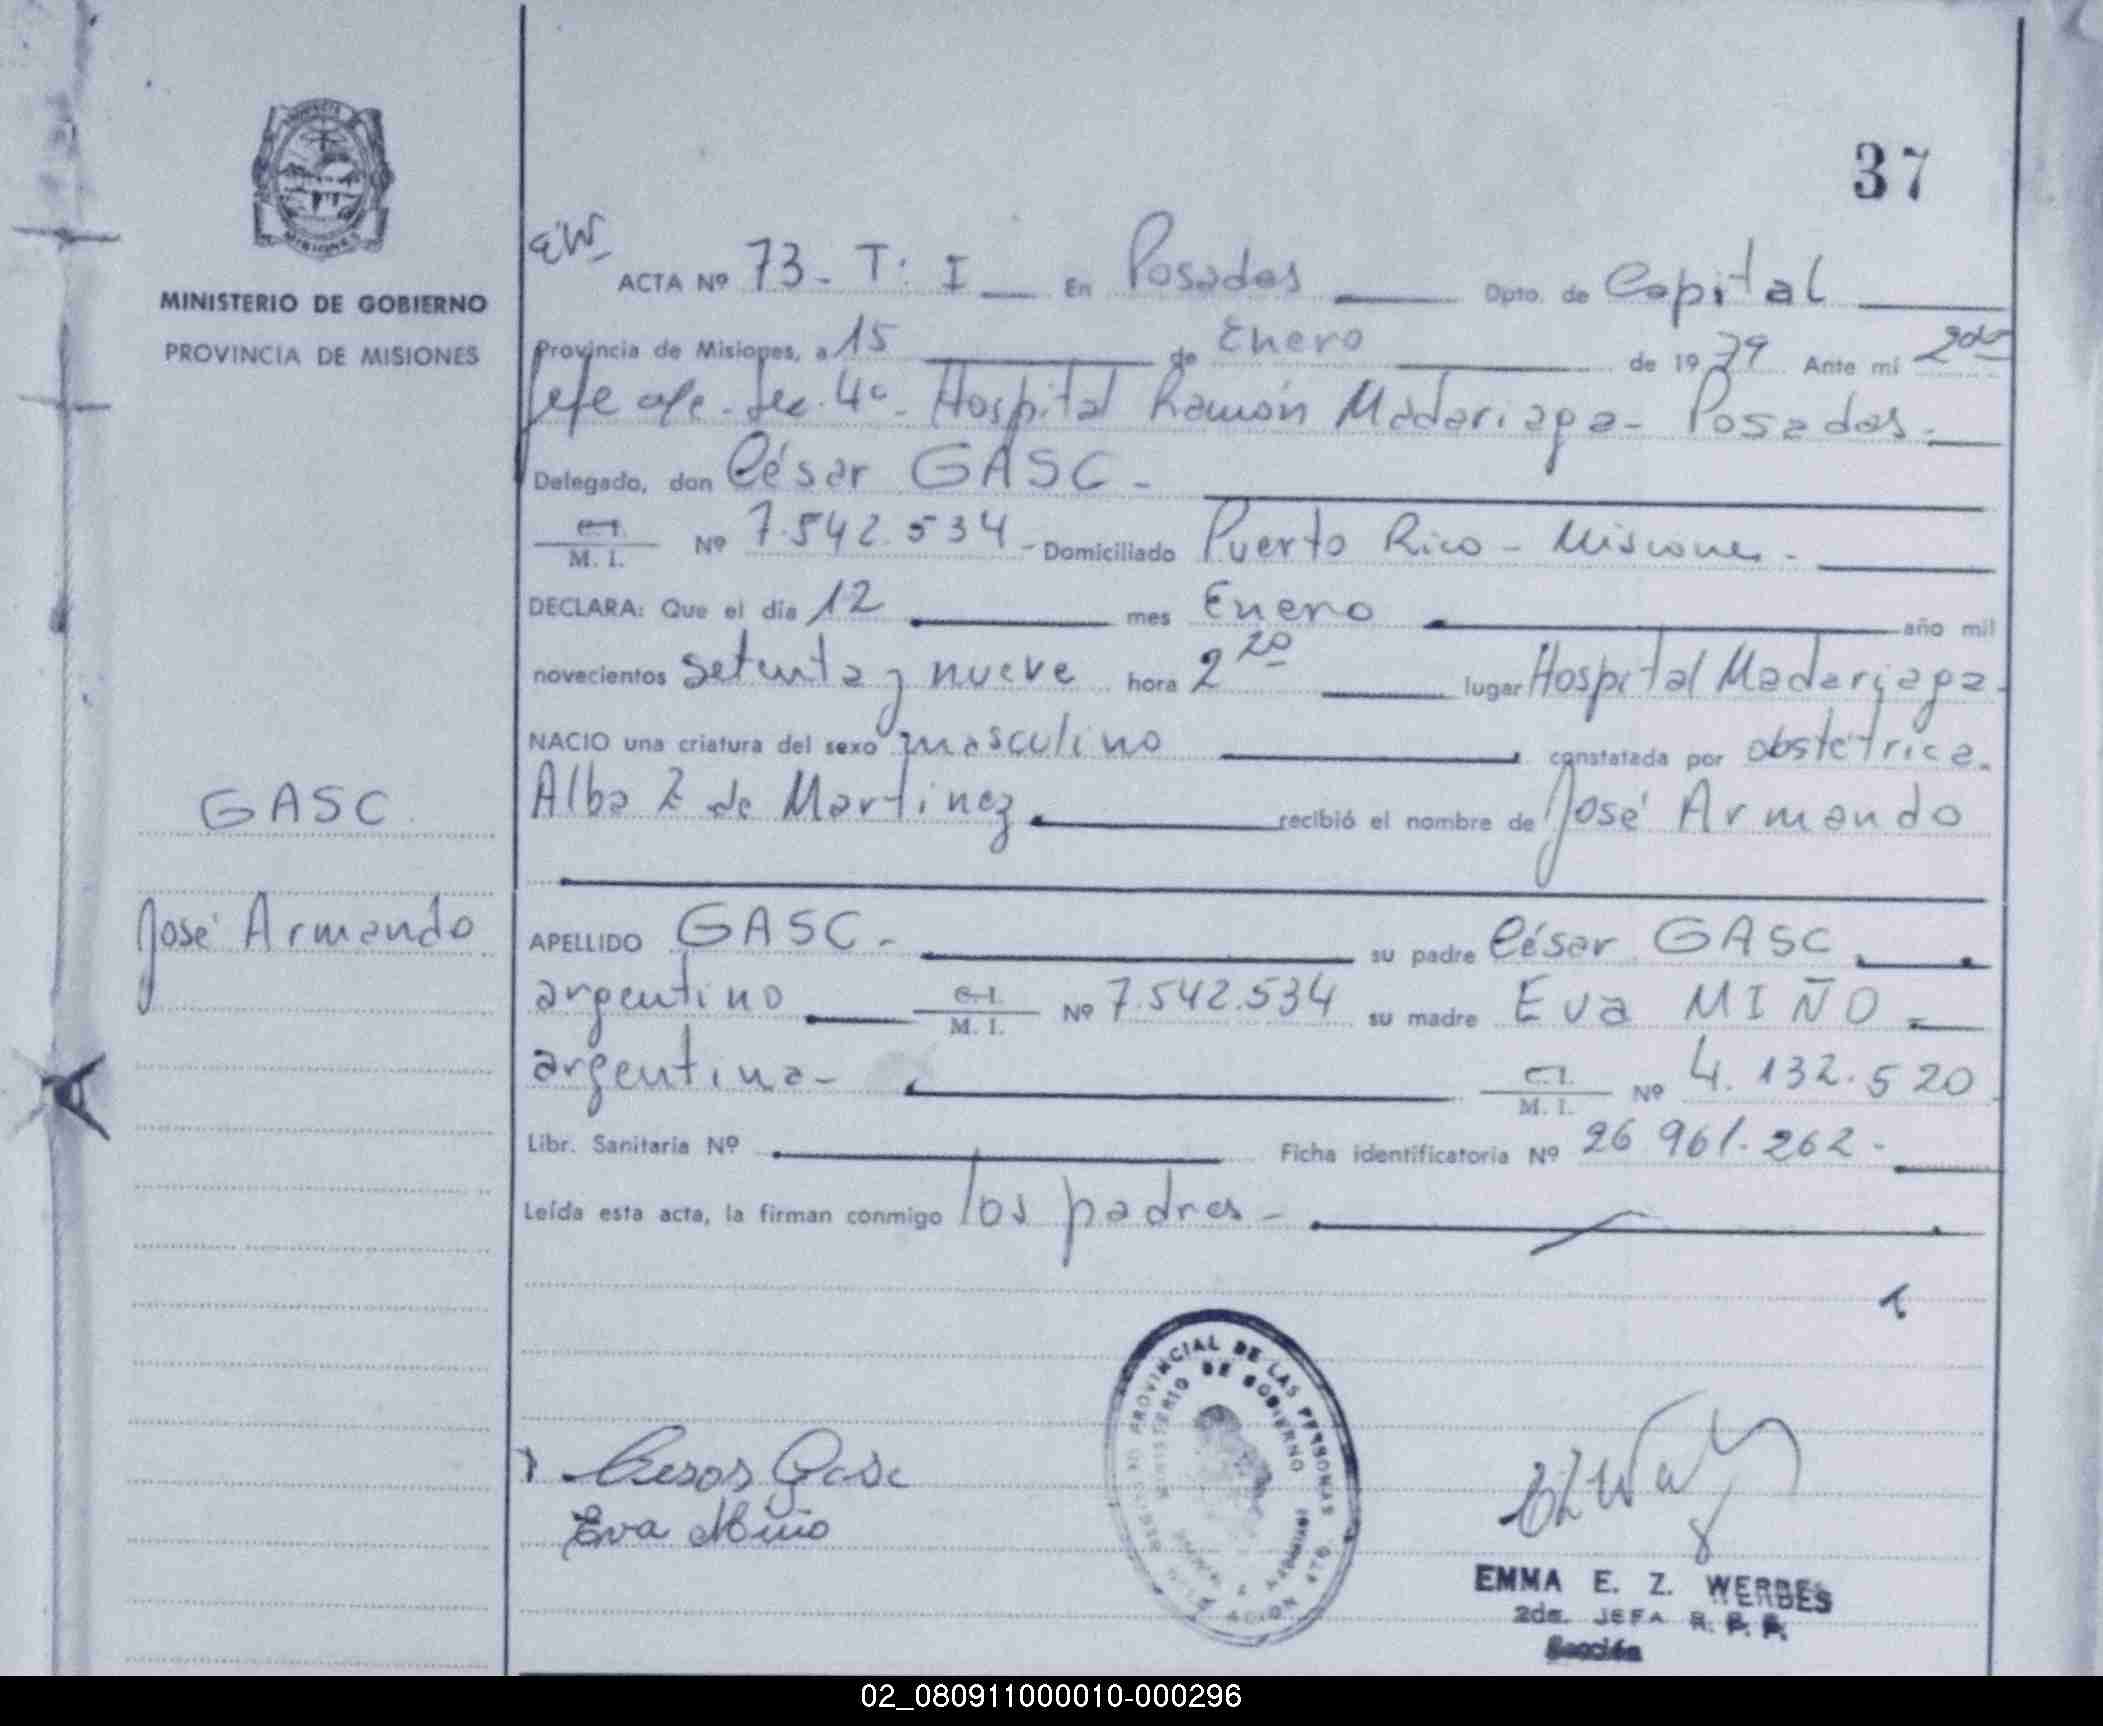 37
MINISTERIO DE GOBIERNO
PROVINCIA DE MISIONES
EW
ACTA Nº 73 - T: I En Posadas Dpto. de Capital
Provincia de Misiones, a 15 de Enero de 1979 Ante mi 2do
Jefe Sec. 4º - Hospital Ramón Madariaga - Posadas -
Delegado, don César GASC -
C.I. M. I. Nº 7.542.534 - Domiciliado Puerto Rico - Misiones -
DECLARA: Que el día 12 mes Enero año mil
novecientos setenta y nueve hora 2 20 lugar Hospital Madariaga -
NACIO una criatura del sexo masculino constatada por obstétrica
Alba Z de Martinez recibió el nombre de José Armando
GASC
José Armando
APELLIDO GASC - su padre César GASC
argentino C.I. M. I. Nº 7.542.534 su madre Eva MIÑO -
argentina - C.I. M. I. Nº 4.132.520
Libr. Sanitaria Nº Ficha identificatoria Nº 26 961.262 -
Leída esta acta, la firman conmigo los padres -
PROVINCIAL DE LAS PERSONAS
MINISTERIO DE GOBIERNO
Gasc
Eva Miño
EMMA E. Z. WERBES
2da. JEFA R. P. P.
Sección
02_080911000010-000296